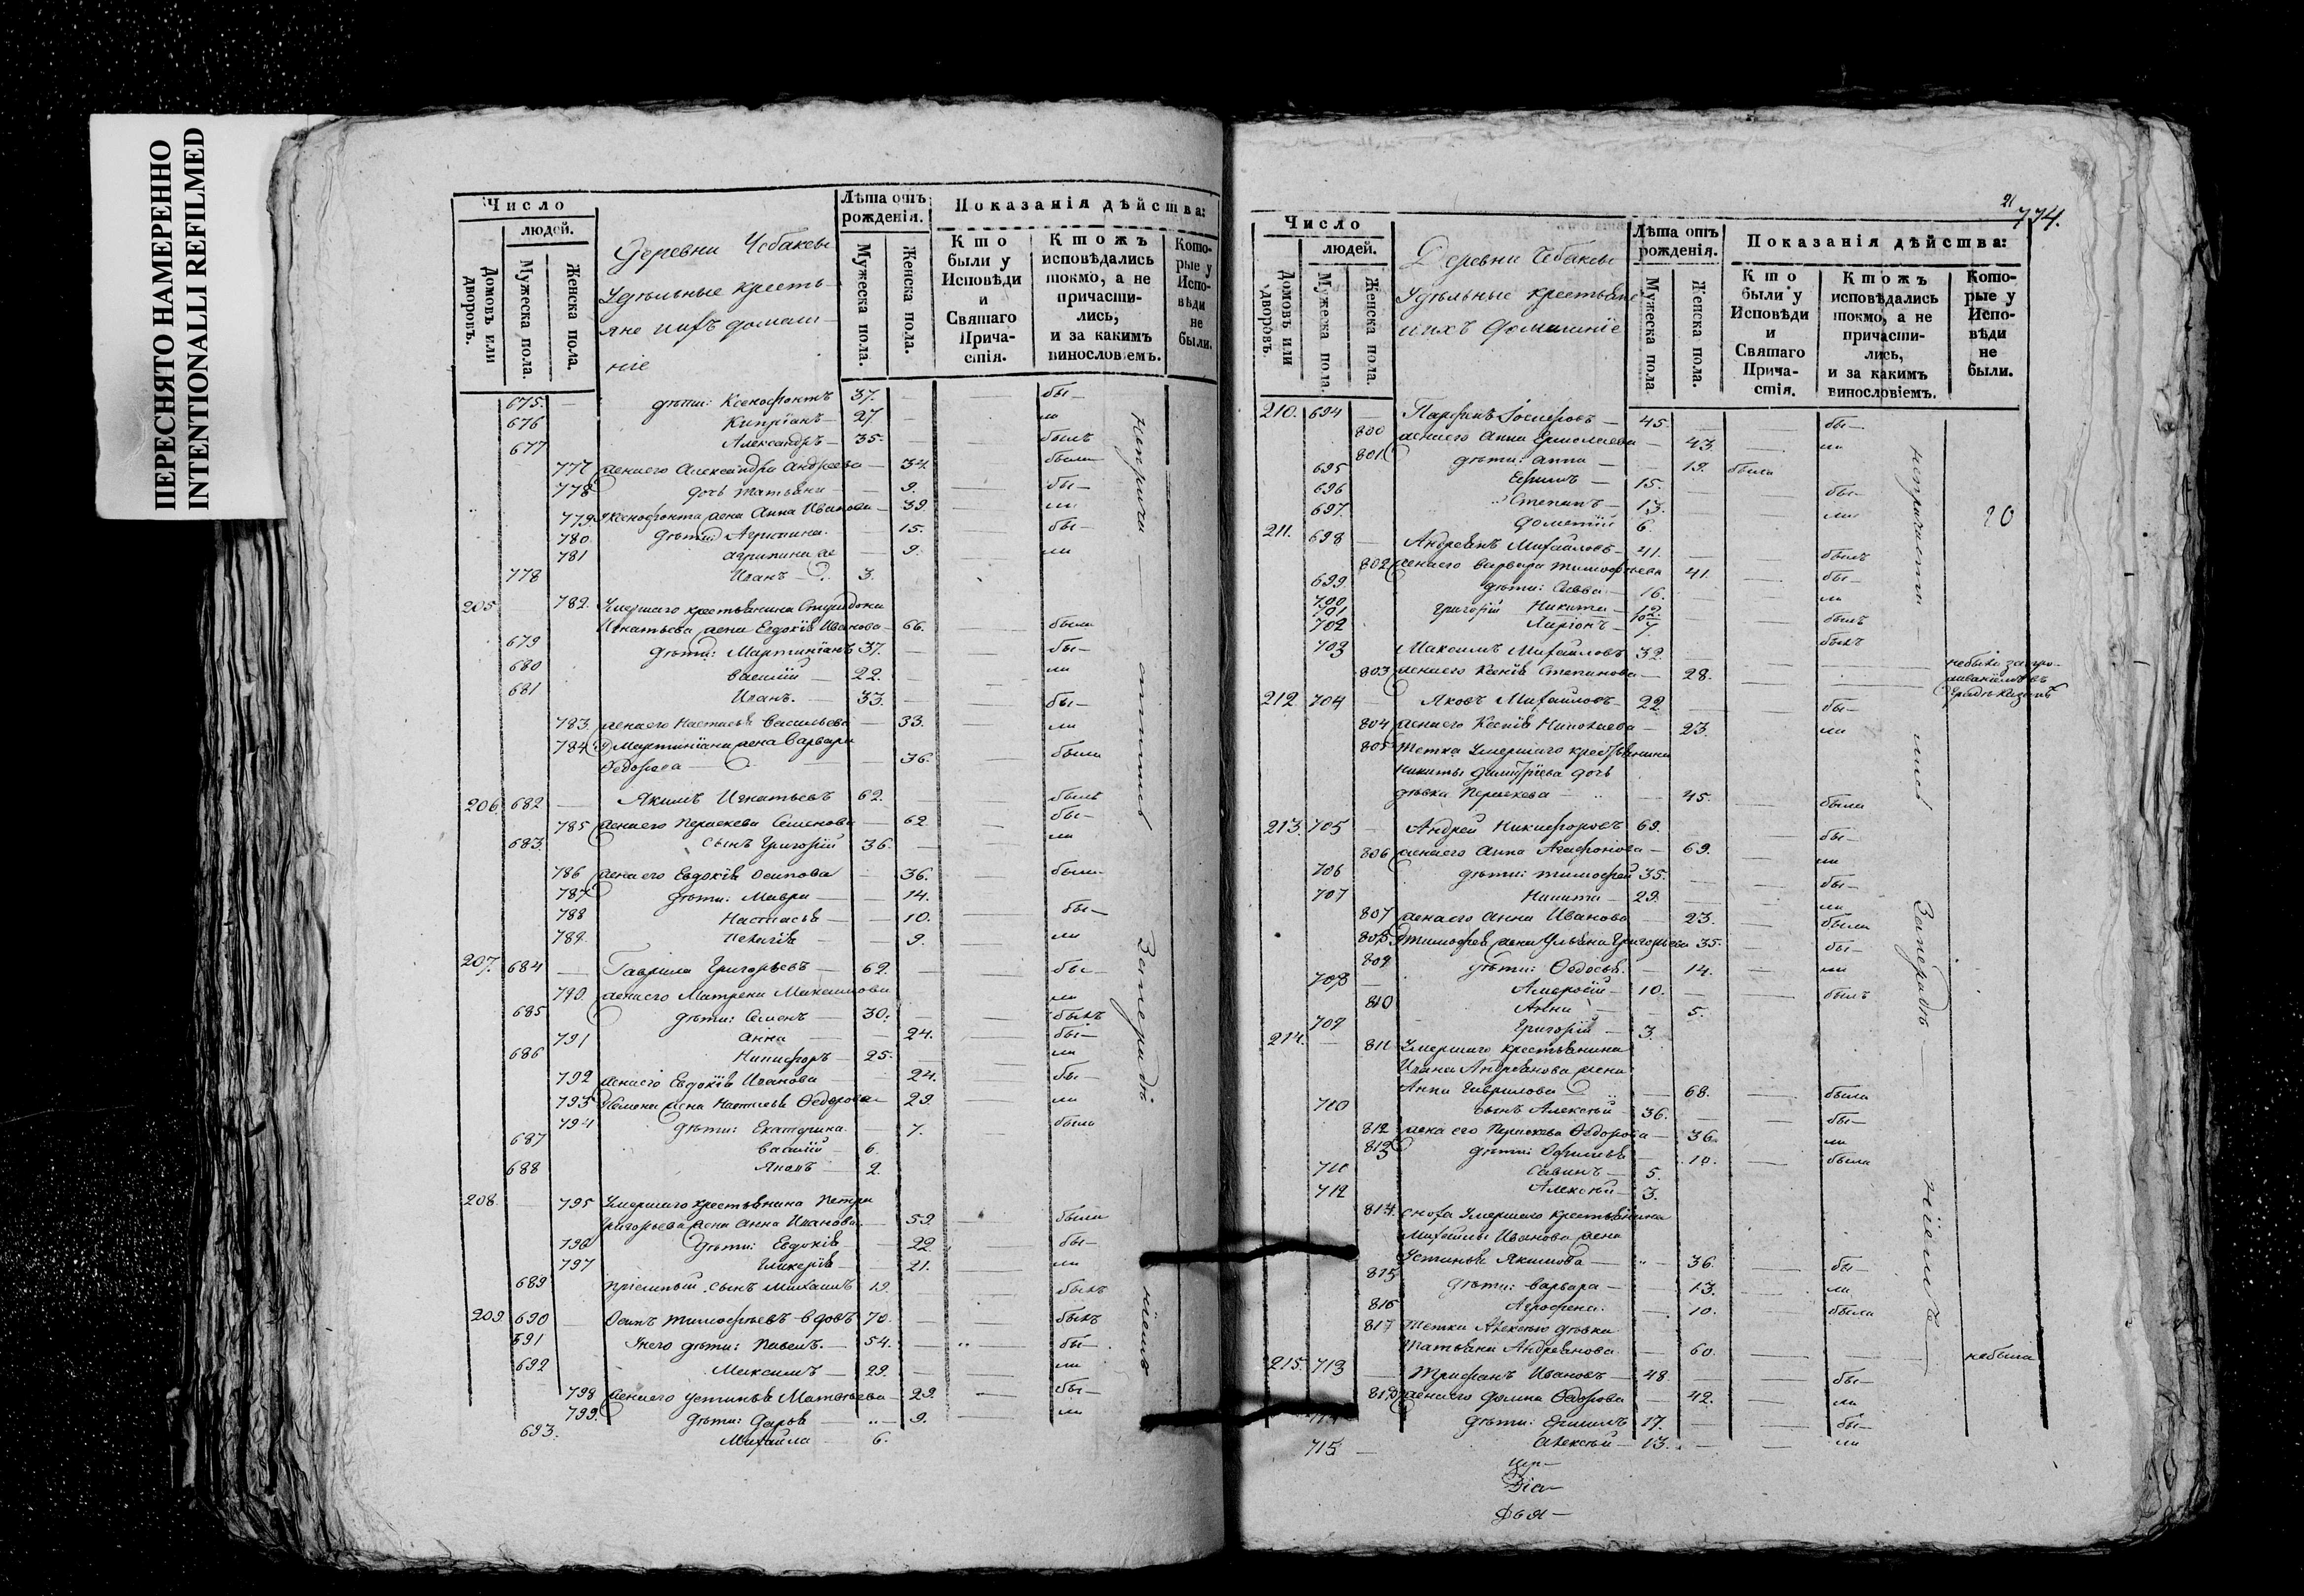 ПЕРЕСНЯТО НАМЕРЕННО
INTENTIONALLI REFILMED
Число
людей.
Домовъ или дворовъ.
Мужеска пола.
Женска пола.
Деревни Чебаксы
Удѣльные кресть-
яне ихъ домаш-
ніе
Лѣта отъ рожденія.
Мужеска пола.
Женска пола.
Показанія дѣйства:
Кто были у Исповѣди и Святаго Прича-стія.
Ктожъ исповѣдались токмо, а не причасти-лись, и за какимъ винословіемъ.
Кото-рые у Испо-вѣди не были.
675. — дѣти: Ксенофонтъ 37. — — бы—
676 Кипріанъ — 27. ли
677 Александръ — 35. — — былъ
777 жена его Александра Андреева — 34. — была
778 дочь Татьяна — 9. — бы—
779 Ксенофонта жена Анна Иванова — 39. — ли
780 дѣти: Агрипина — 15. — бы—
781 Агрипина же — 9. — ли
778 Иванъ — 3.
205. — 782. Умершаго крестьянина Спиридона
Игнатьева жена Евдокія Иванова — 66. — была
679 дѣти: Мартиніанъ 37. — — бы—
680 Василій — 22. — — ли
681 Иванъ. — 33. — — бы—
783. жена его Настасья Васильева — 33. — ли
784 Мартиніана жена Варвара
Ѳедорова — 36. — была
206. 682 — Якимъ Игнатьевъ 62. — былъ
785 жена его Параскева Семенова — 62. — бы—
683. сынъ Григорій 36. — — ли
786 жена его Евдокія Осипова — 36. — была
787 дѣти: Мавра — 14.
788 Настасья — 10. — бы—
789. Пелагія — 9. — ли
207. 684 — Гаврила Григорьевъ — 62. — — бы—
790. жена его Матрена Максимова — ли
685 дѣти: Семенъ — 30. — — былъ
791 Анна — 24. — бы—
686 Никифоръ — 25. — — ли
792 жена его Евдокія Иванова — 24. — бы—
793 Семена жена Настасья Ѳедорова — 29. — ли
794 дѣти: Екатерина — 7. — была
687 Василій — 6.
688 2.
208. — 795 Умершаго крестьянина Петра
Григорьева жена Анна Иванова — 59. — была
796 дѣти: Евдокія — 22. — бы—
797 Гликерія — 21. — ли
689 пріемный сынъ Михаилъ 19. — былъ
209. 690 — Осипъ Тимофѣевъ вдовъ 70. — — былъ
691 У него дѣти: Павелъ. — 54. — — бы—
692 Максимъ — 29. — ли
798 жена его Устинья Матвѣева — 29. — бы—
799. дѣти: Дарья — 9. — ли
693. Михайла — 6.
непричастились за нерадѣніемъ
21
774.
Число
людей.
Домовъ или дворовъ.
Мужежа пола.
Женска пола.
Деревни Чебаксы
Удѣльные крестьяне
ихъ домашніе
Лѣта отъ рожденія.
Мужеска пола
Женска пола.
Показанія дѣйства:
Кто были у Исповѣди и Святаго Прича-стія.
Ктожъ исповѣдались токмо, а не причасти-лись, и за какимъ винословіемъ.
Кото-рые у Испо-вѣди не были.
210. 694 — Парфенъ Іосифовъ — 45. — — бы—
800 жена его Анна Ермолаева — 43. — ли
801 дѣти: Анна — 19. была
695 Ефимъ — 15. — бы—
696 Степанъ — 13. — ли
697. Дометій 6.
211. 698 — Андреянъ Михайловъ — 41. — — былъ
802 жена его Варвара Тимофѣева 41. — бы—
699. дѣти: Савва — 16. — ли
700 Никита — 12. — былъ
701 Григорій 10
702 Ларіонъ — 7. былъ
703 Максимъ Михайловъ 32.
803 жена его Ксенія Степанова — 28.
212. 704 — Яковъ Михайловъ — 22. — бы—
804 жена его Ксенія Николаева — 23. — ли
805 Тетка Умершаго крестьянина
Никиты Димитріева дочь
дѣвка Параскева — 45. — была
213. 705 — Андрей Никифоровъ 69. — бы—
806 жена его Анна Агафонова — 69. — ли
706 дѣти: Тимофей 35. — бы—
707 Никита — 29. — ли
807 жена его Анна Иванова — 23. — была
808 Тимофея жена Ульяна Григорьева 35. — бы—
809 дѣти: Ѳедосья. — 14. — ли
708 — Амвросій — 10. — былъ
810 Анна — 5.
709 Григорій — 3.
214. — 811 Умершаго крестьянина
Ивана Андреянова жена
Анна Гаврилова — 68. — была
710 сынъ Алексѣй — 36. — бы—
812 жена его Параскева Ѳедорова — 36. — ли
813 дѣти: — 10. — была
711 Савинъ — 5.
712 Алексѣй — 3.
814. сноха Умершаго крестьянина
Михайлы Иванова жена
Устинья Якимова — 36. — бы—
815 дѣти: Варвара — 13. — ли
816 Агрофена — 10. — была
817 Тетка Алексѣю дѣвка
Татьяна Андреянова — 60. — небыла
215. 713 — Трифанъ Ивановъ — 48. — — бы—
818 жена его Фелина Ѳедорова — 42. — ли
дѣти: Ефимъ 17. — — бы—
715 — Алексѣй — 13. — — ли
непричастились за нерадѣніемъ
Діа—
Дья—